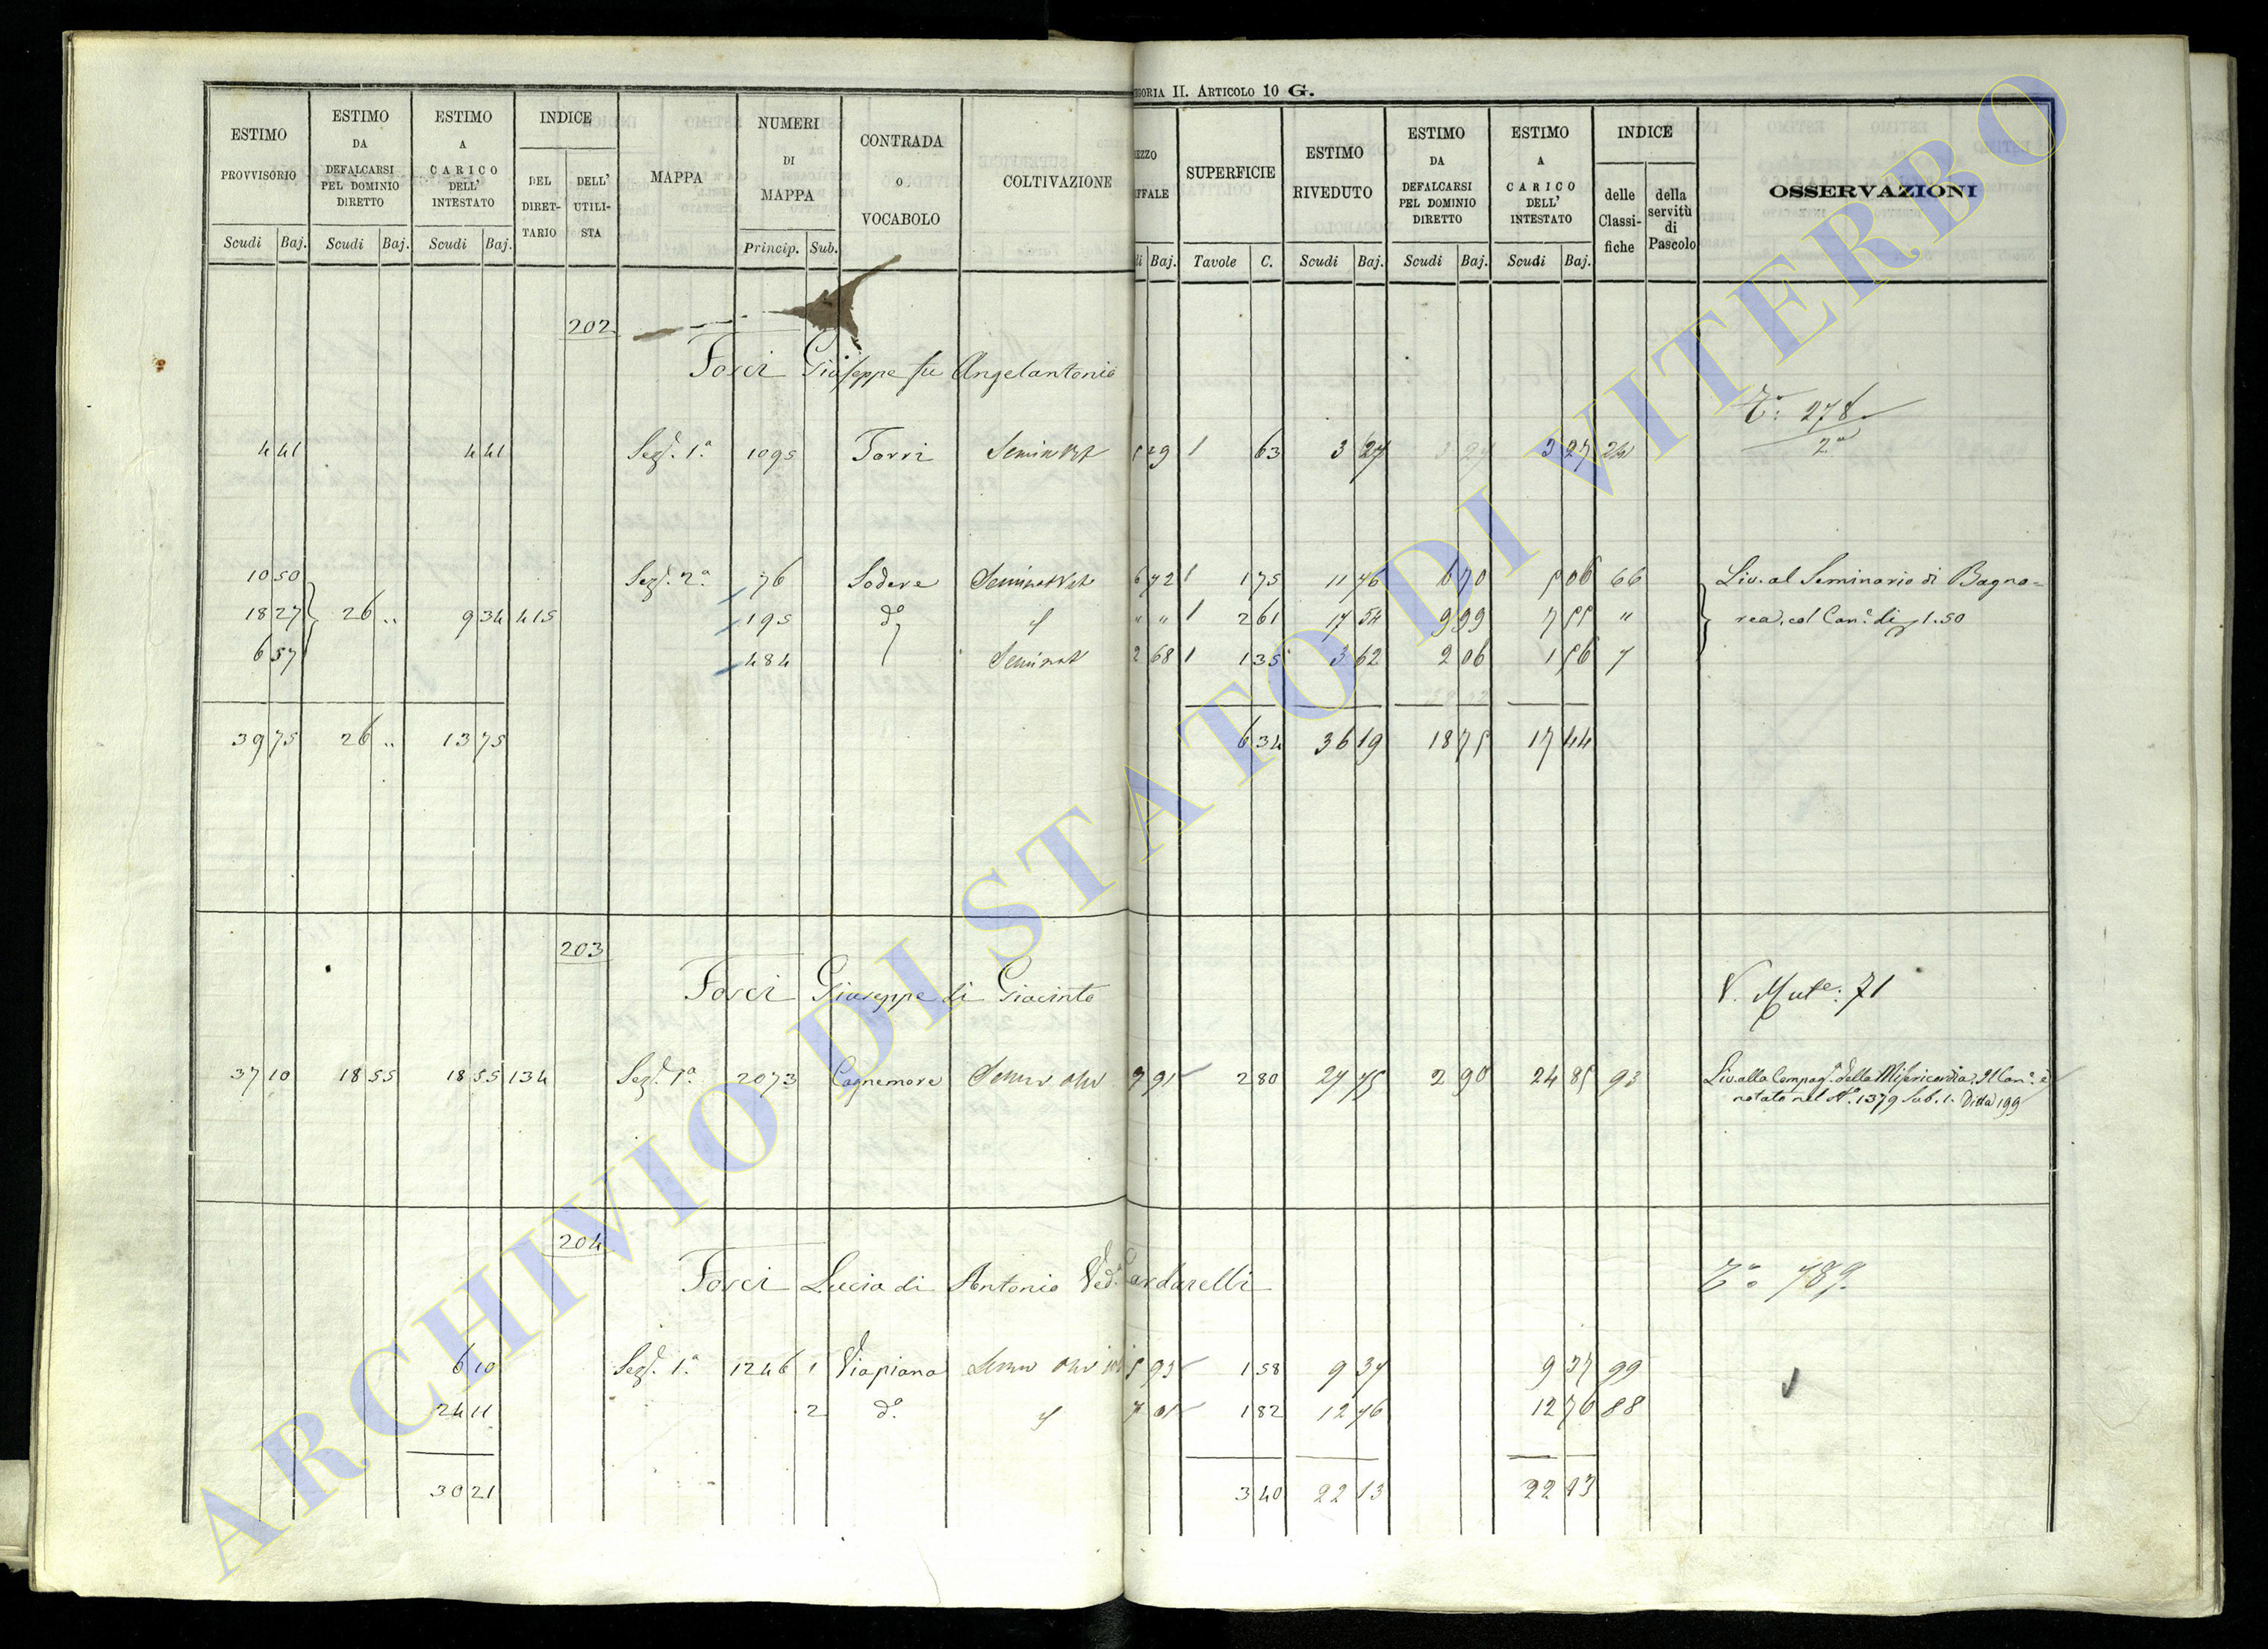 EGORIA II. ARTICOLO 10 G.
ESTIMO PROVVISORIO
ESTIMO DA DEFALCARSI PEL DOMINIO DIRETTO
ESTIMO A CARICO DELL' INTESTATO
INDICE
DEL DIRET-TARIO
DELL' UTILI-STA
MAPPA
NUMERI DI MAPPA
CONTRADA O VOCABOLO
COLTIVAZIONE
EZZO IFFALE
SUPERFICIE
ESTIMO RIVEDUTO
ESTIMO DA DEFALCARSI PEL DOMINIO DIRETTO
ESTIMO A CARICO DELL' INTESTATO
INDICE
delle Classi-fiche
della servitù di Pascolo
OSSERVAZIONI
Scudi Baj. Scudi Baj. Scudi Baj. Princip. Sub. di Baj. Tavole C. Scudi Baj. Scudi Baj. Scudi Baj.
202
Forci Giuseppe fu Angelantonio
Tª. 278.
2ª
4 41 4 41 Sezº. 1ª. 1095 Torri 29 1 63 3 27 3 27 3 27
10 50 Sezº. 2ª. 76 Sodere 6 72 1 1 75 11 76 6 70 5 06 66 Liv. al Seminario di Bagno=
18 27 26 .. 9 34 415 195 dº " " 1 2 61 17 54 9 99 7 55 " rea, col Canº. di 1.50
6 57 484 Seminat 2 68 1 1 35 3 62 2 06 1 56 7
39 75 26 .. 13 75 6 34 36 19 18 75 17 44
203
Forci Giuseppe di Giacinto
V. Mute. 71
37 10 18 55 18 55 134 Sezº. 1ª. 2073 Cagnemore 9 91 2 80 27 75 2 90 24 85 93 Liv. alla Compagª. della Misericordia. Il Canº. è
notato nel Nº. 1379 Sub. 1. Ditta 199
204
Forci Lucia di Antonio Vedª. Cardarelli
Tª. 789.
6 10 Sezº. 1ª. 1246 1 Viapiana 5 93 1 58 9 37 9 37 99
24 11 2 dº. 7 01 1 82 12 76 12 76 88
30 21 3 40 22 13 22 13
ARCHIVIO DI STATO DI VITERBO